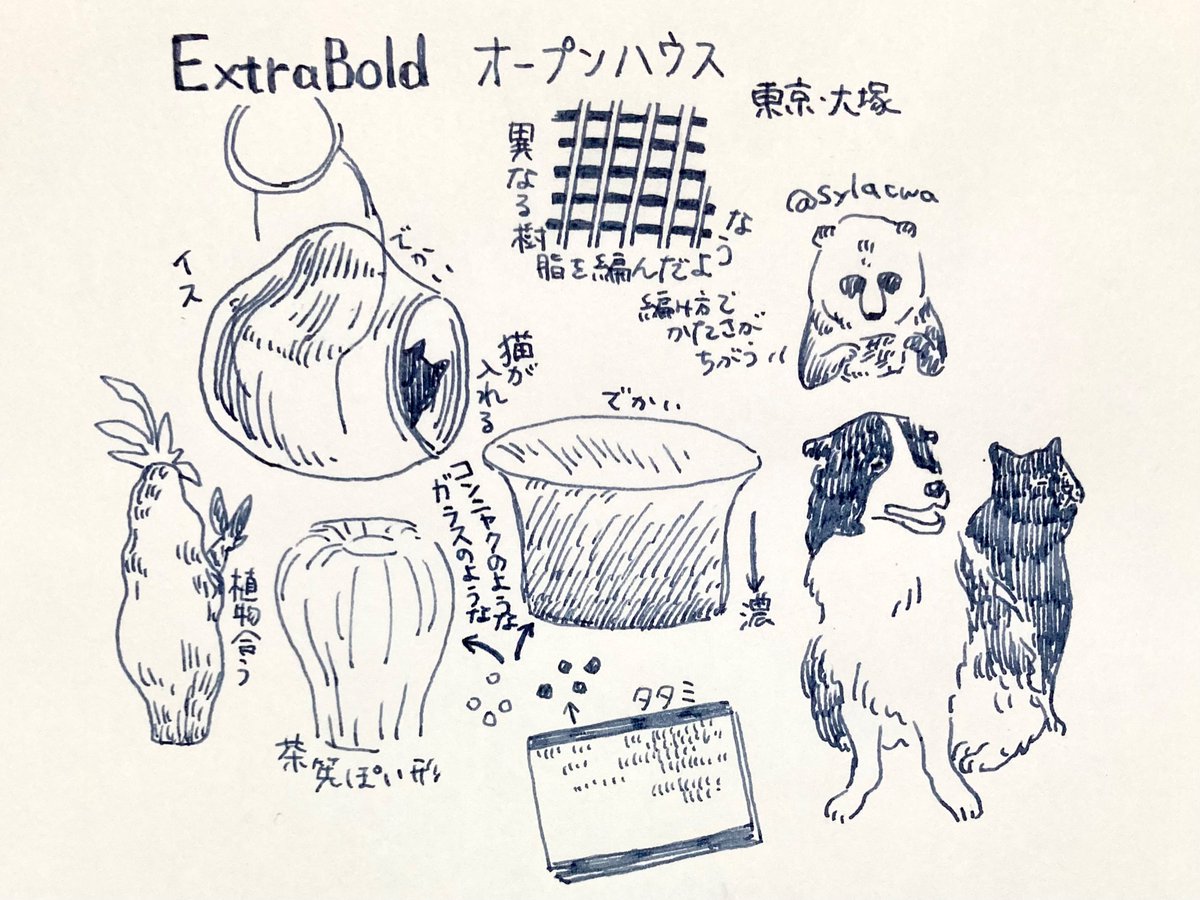 ExtraBold オープンハウス
東京・大塚
異なる樹
脂を編んだよ
なう
編み方で
かたさが
ちがう〃
@sylacwa
イス
でかい
猫が
入れる
でかい
コンニャクのような
ガラスのような
濃
植物合う
茶筅ぽい形
タタミ